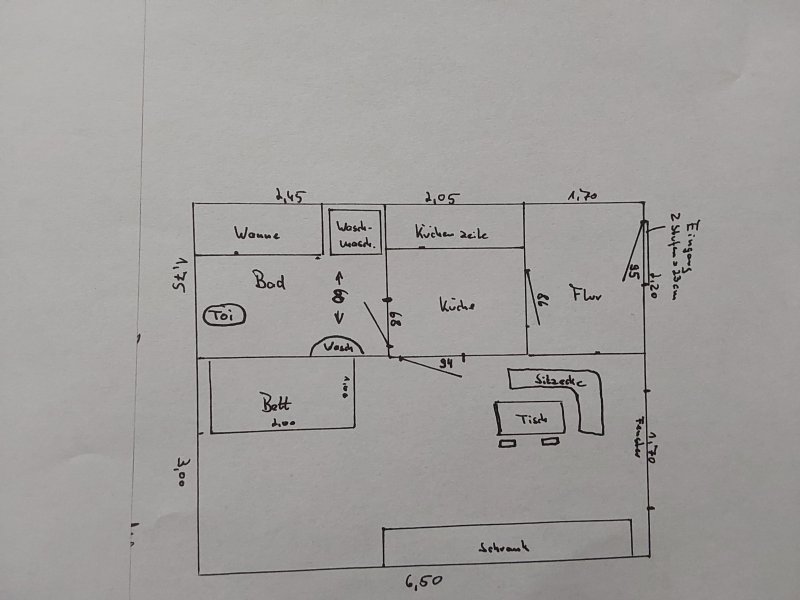 2,45
2,05
1,70
Wanne
Wasch-
masch.
Küchenzeile
Eingang
2 Stufen = 23 cm
1,75
Bad
60
Toi
Wasch
68
Küche
86
Flur
95
2,20
94
Bett
1,00
2,00
Sitzecke
Tisch
Fenster
1,70
3,00
Schrank
6,50